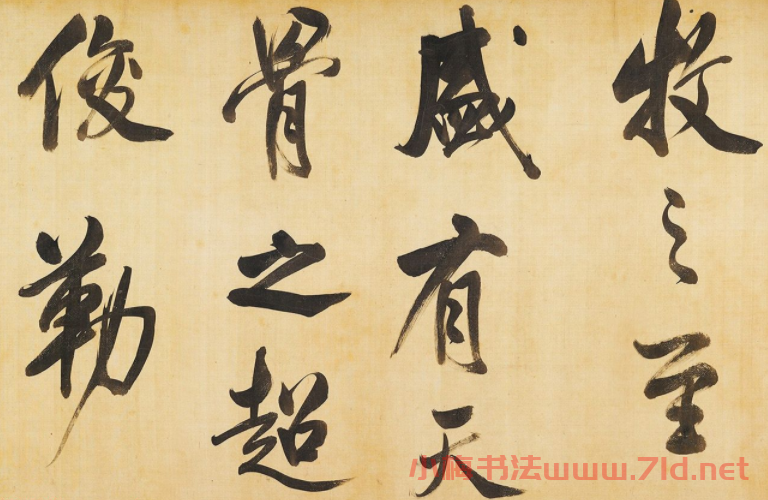 牧之至
盛有天
骨之超
俊勒
小梅书法www.7ld.net